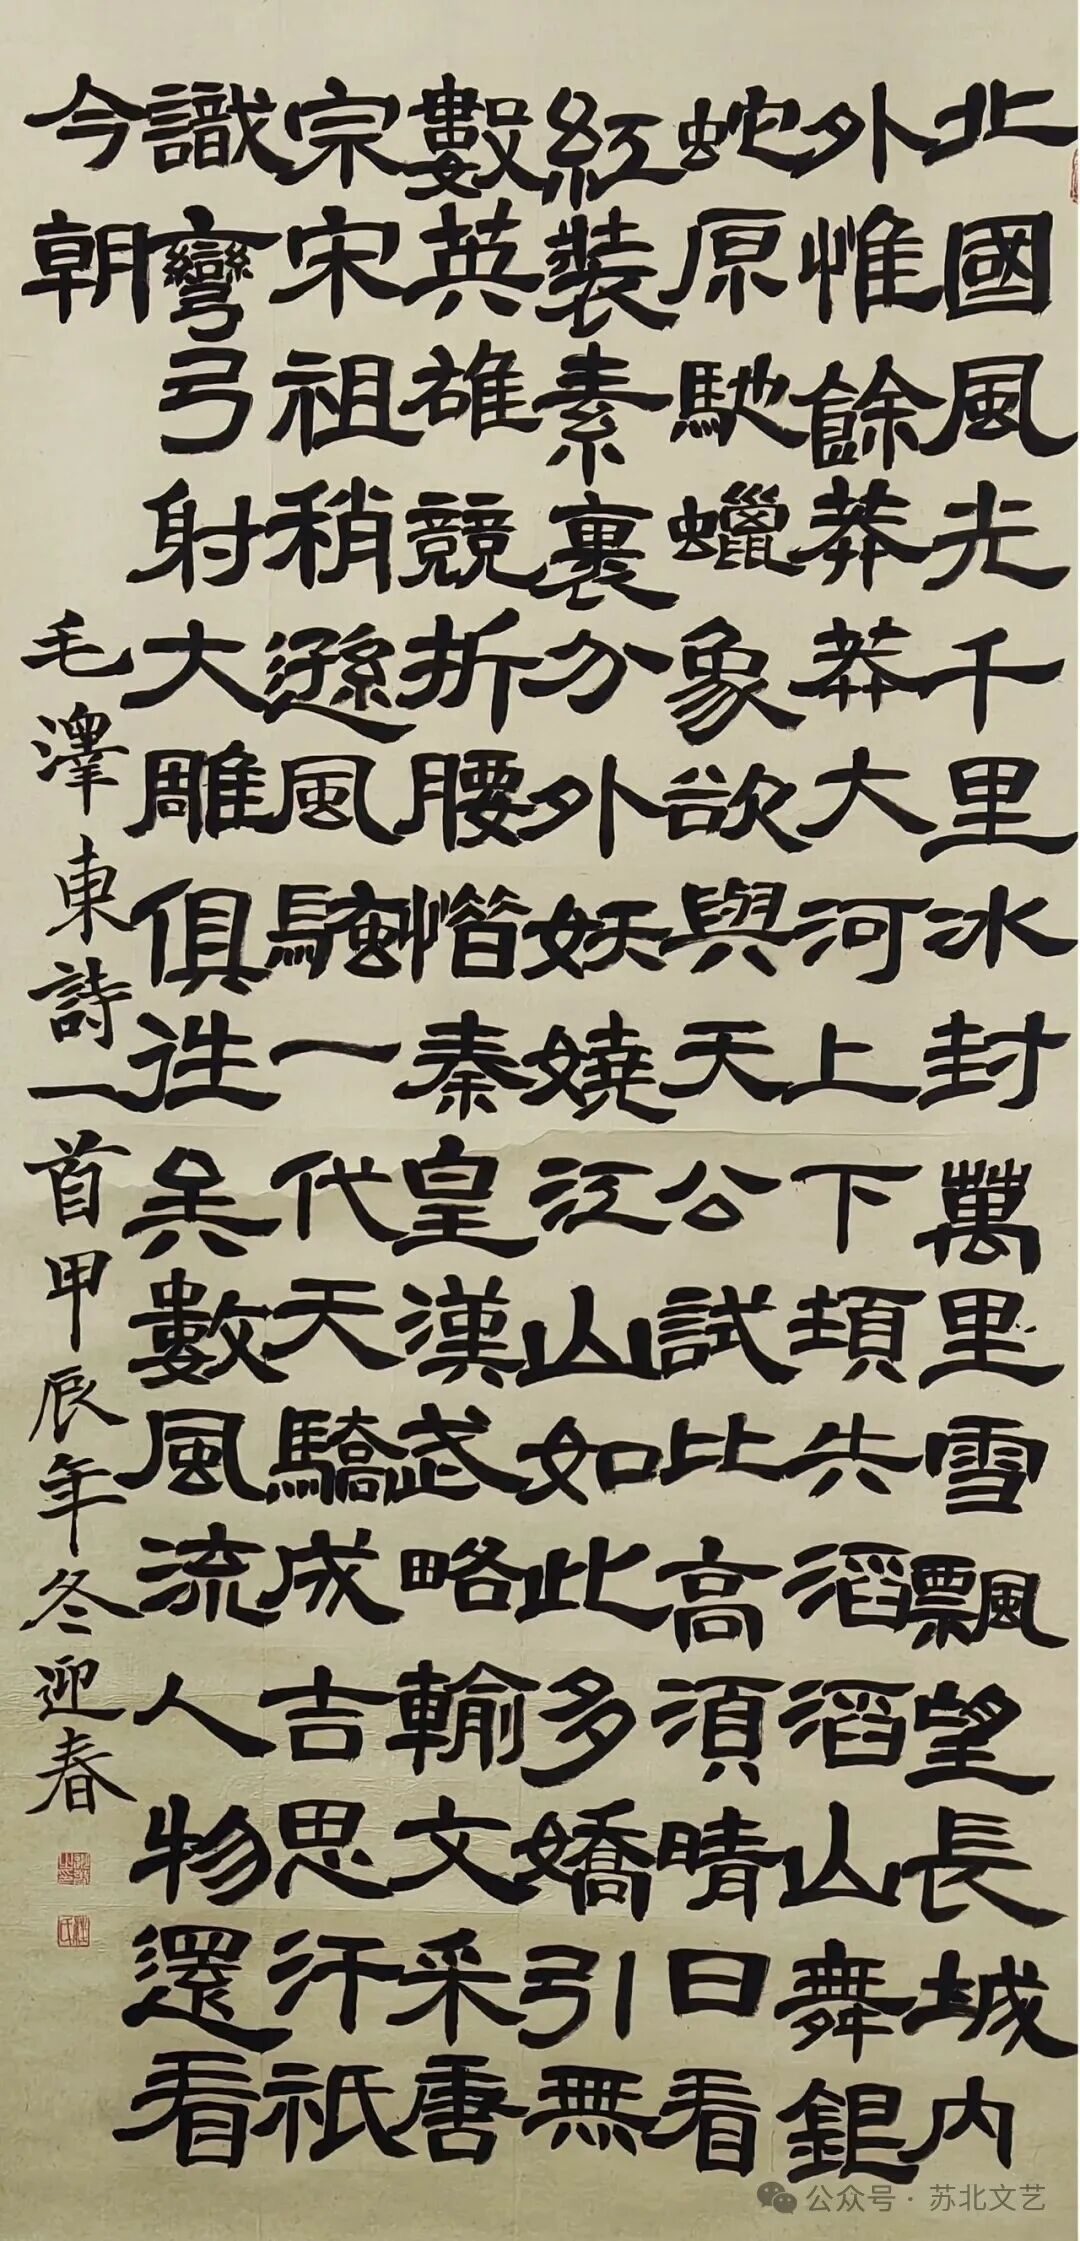 北國風光千里冰封萬里雪飄望長城内
外惟餘莽莽大河上下頓失滔滔山舞銀
蛇原馳蠟象欲與天公試比高須晴日看
紅裝素裹分外妖嬈江山如此多嬌引無
數英雄競折腰惜秦皇漢武略輸文采唐
宗宋祖稍遜風騷一代天驕成吉思汗祇
識彎弓射大雕俱往矣數風流人物還看
今朝
毛澤東詩一首甲辰年冬迎春
公众号·苏北文艺